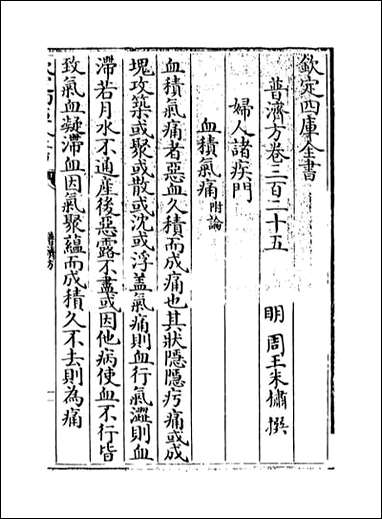 欽定四庫全書
普濟方卷三百二十五
明 周王朱橚 撰
婦人諸疾門
血積氣痛附論
血積氣痛者惡血久積而成痛也其狀隱隱㽲痛或成
塊攻築或聚或散或沈或浮蓋氣痛則血行氣澀則血
滯若月水不通産後惡露不盡或因他病使血不行皆
致氣血凝滯血因氣聚藴而成積久不去則為痛
普濟方